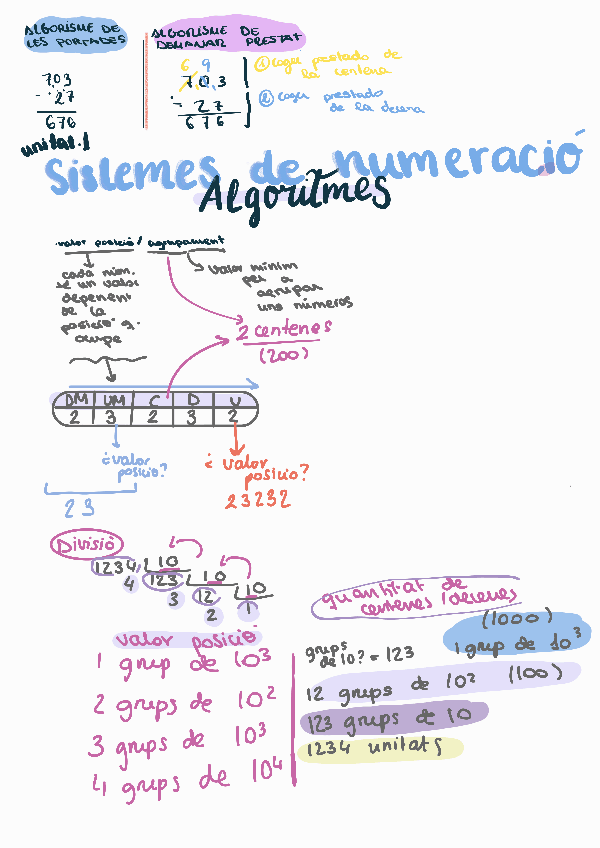 ALGORISME DE
LES PORTADES
703
- 27
676
ALGORISME DE
DEMANAR PRESTAT
6 9
703
- 27
676
① coger prestado de
la centena
② coger prestado
de la decena
unitat.1
Sistemes de numeració
Algoritmes
valor posició / agrupament
cada núm.
té un valor
depenent
de la
posició q.
ocupe
valor mínim
per a
agrupar
uns números
2 centenes
(200)
DM UM C D U
2 3 2 3 2
¿valor
posició?
23
¿valor
posició?
23232
Divisió
1234 10
4 123 10
3 12 10
2 1
valor posició
1 grup de 10³
2 grups de 10²
3 grups de 10³
4 grups de 10⁴
quantitat de
centenes/decenes
(1000)
1 grup de 10³
grups
de 10? = 123
12 grups de 10² (100)
123 grups de 10
1234 unitats